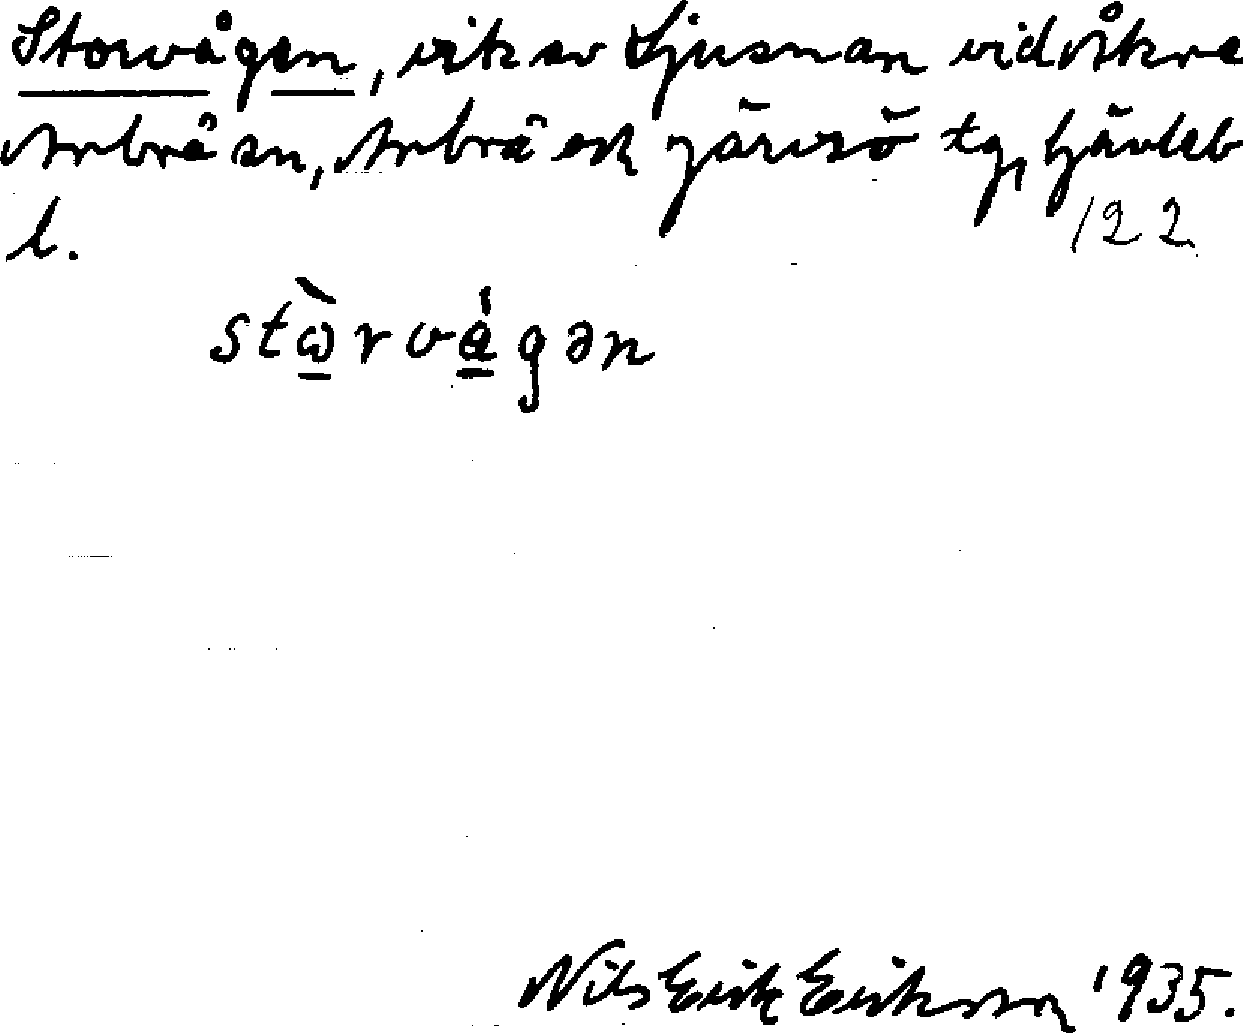 Storvågen, vik av Ljusnan vid Åkre
Arbrå sn, Arbrå och Järvsö tg, Gävleb
l.
122
stὼ̲rvά̲gən
Nils Erik Eriksson 1935.